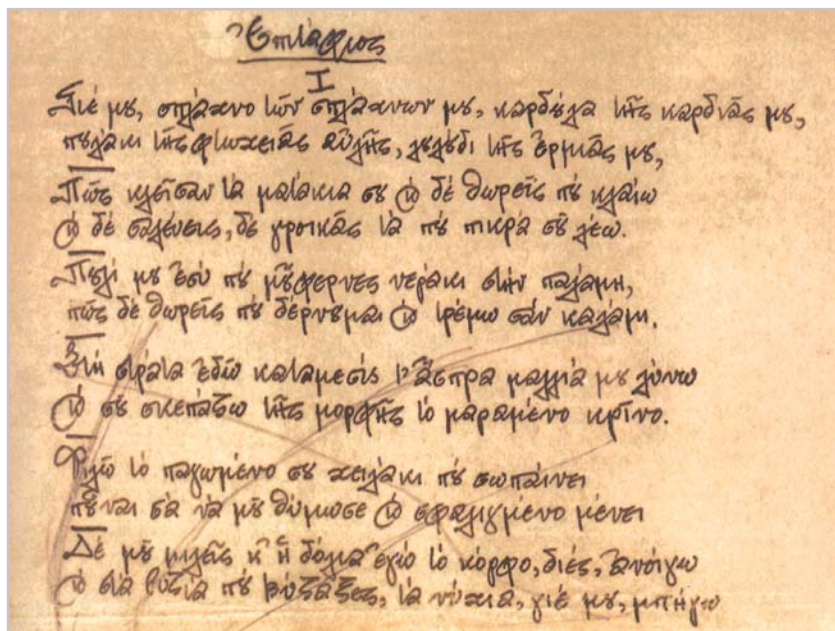 Ἐπιτάφιος
I
Γιέ μου, σπλάχνο τῶν σπλάχνων μου, καρδούλα τῆς καρδιᾶς μου,
πουλάκι τῆς φτωχειᾶς αὐλῆς, λουλούδι τῆς ἐρμιᾶς μου,
Πῶς κλεῖσαν τὰ ματάκια σου καὶ δὲ θωρεῖς ποὺ κλαίω
καὶ δὲ σαλεύεις, δὲ γροικᾶς τὰ ποὺ πικρὰ σοῦ λέω.
Πουλί μου ἐσὺ ποὺ μοῦφερνες νεράκι στὴν παλάμη,
πῶς δὲ θωρεῖς ποὺ δέρνουμαι καὶ τρέμω σὰν καλάμι.
Στὴ στράτα ἐδῶ καταμεσὶς τ' ἄσπρα μαλλιά μου λύνω
καὶ σοῦ σκεπάζω τῆς μορφῆς τὸ μαραμένο κρῖνο.
Φιλῶ τὸ παγωμένο σου χειλάκι ποὺ σωπαίνει
ποὖναι σὰ νὰ μοῦ θύμωσε καὶ σφαλιγμένο μένει
Δέ μοῦ μιλεῖς κ' ἡ δόλια ἐγὼ τὸ κόρφο, διές, ἀνοίγω
καὶ στὰ βυζιὰ ποὺ βύζαξες, τὰ νύχια, γιέ μου, μπήγω